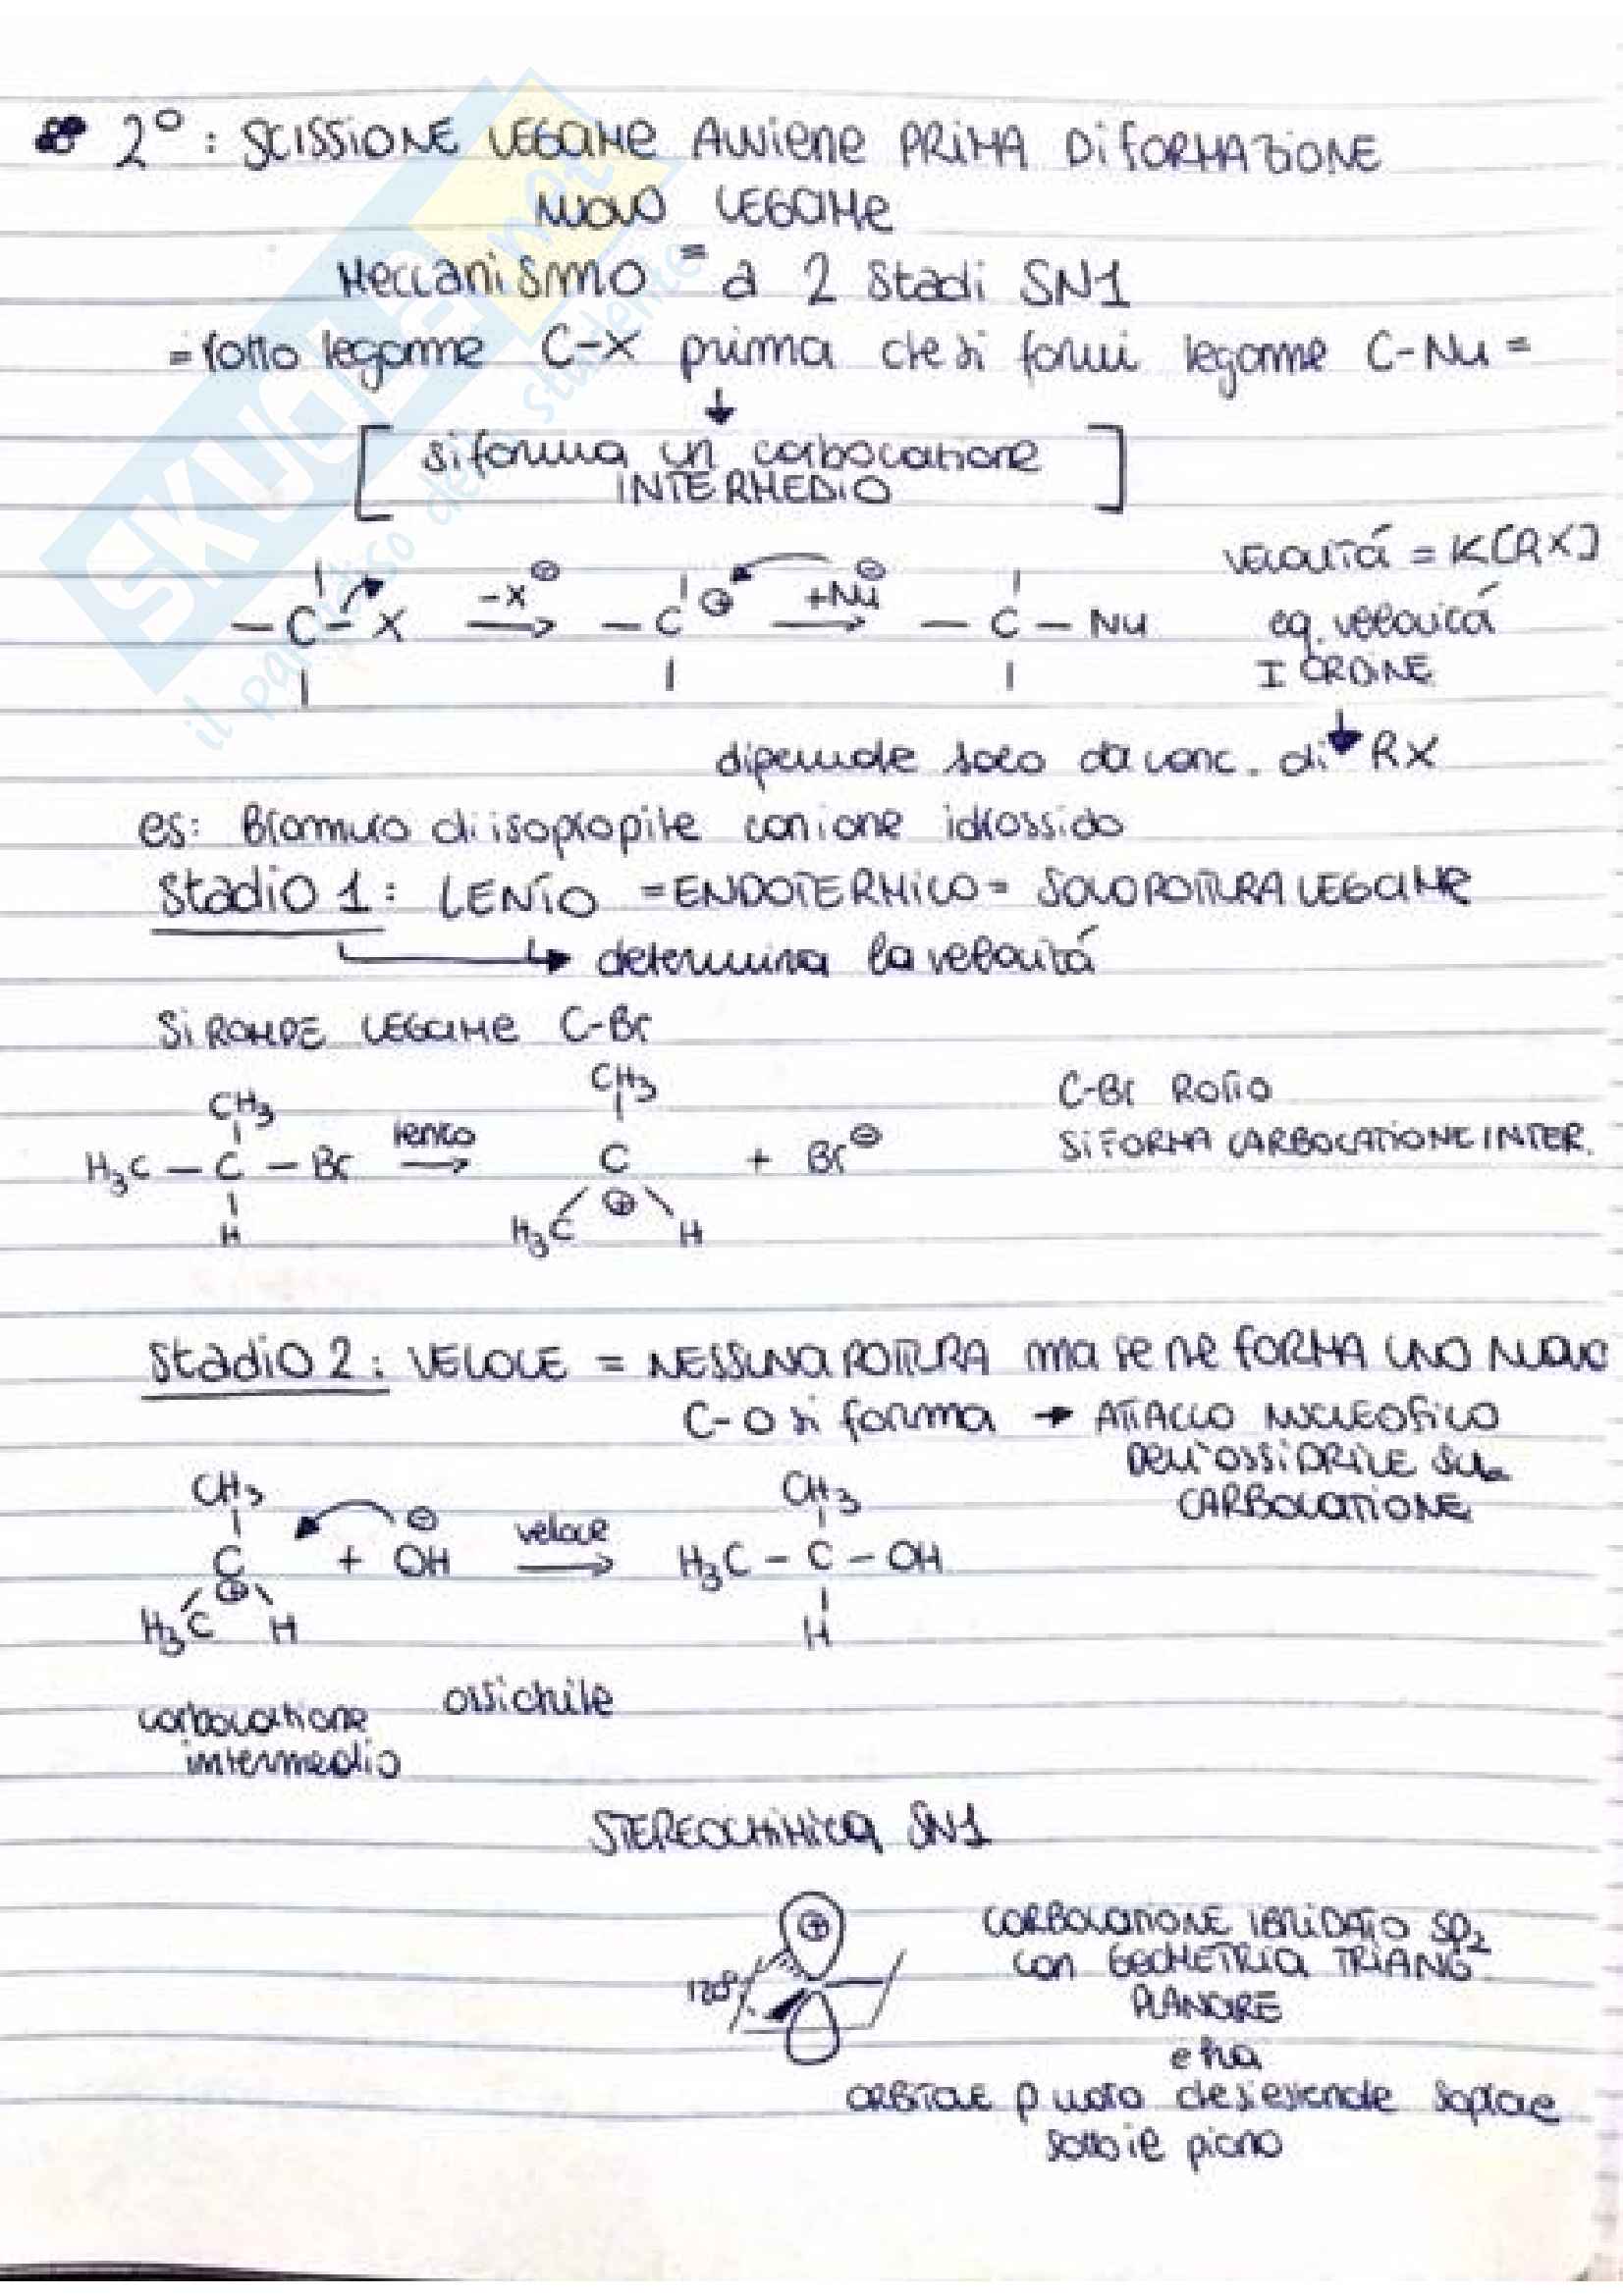 2° : SCISSIONE LEGAME AVVIENE PRIMA DI FORMAZIONE
NUOVO LEGAME
=
Meccanismo a 2 stadi SN1
= rotto legame C-X prima che si formi legame C-Nu =
[ si forma un carbocatione
INTERMEDIO ]
VELOCITÁ = K[RX]
-X⊖ +Nu⊖
— C — X → — C ⊕ → — C — Nu
eq. velocitá
I ORDINE
dipende solo da conc. di RX
es: Bromuro di isopropile con ione idrossido
Stadio 1 : LENTO = ENDOTERMICO = SOLO ROTTURA LEGAME
determina la velocitá
SI ROMPE LEGAME C-Br
CH3 CH3
C-Br ROTTO
H3C — C — Br lento → C + Br⊖
SI FORMA CARBOCATIONE INTER.
H H3C ⊕ H
Stadio 2 : VELOCE = NESSUNA ROTTURA ma se ne FORMA UNO NUOVO
C-O si forma → ATTACCO NUCLEOFILO
DELL'OSSIDRILE SUL
CARBOCATIONE
CH3 ⊖ CH3
C + OH veloce → H3C — C — OH
H3C ⊕ H H
carbocatione
intermedio
ossidrile
STEREOCHIMICA SN1
⊕
120°
CARBOCATIONE IBRIDATO SP2
con GEOMETRIA TRIANG
PLANARE
e ha
ORBITALE p vuoto che si estende sopra e
sotto il piano
SKUOLA.net
il paradiso dello studente